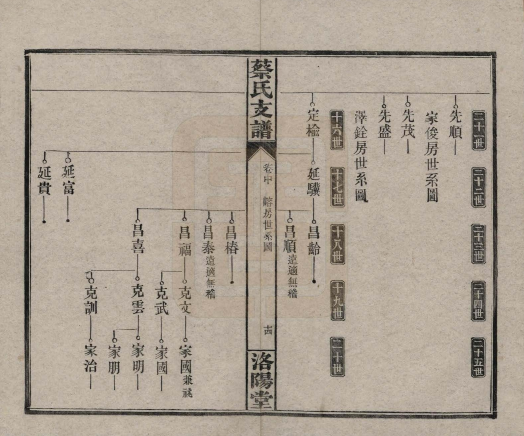 二十一世
二十二世
二十三世
二十四世
二十五世
先順
家俊房世系圖
先茂
先盛
澤銓房世系圖
十六世
十七世
十八世
十九世
二十世
定樞
延驥
昌齡
昌順遠適無稽
蔡氏支譜
卷中
房世系圖
洛陽堂
昌椿
昌泰遠適無稽
昌福
克文
家國兼祧
克武
家國
昌喜
克雲
家明
家朋
克訓
家治
延富
延貴